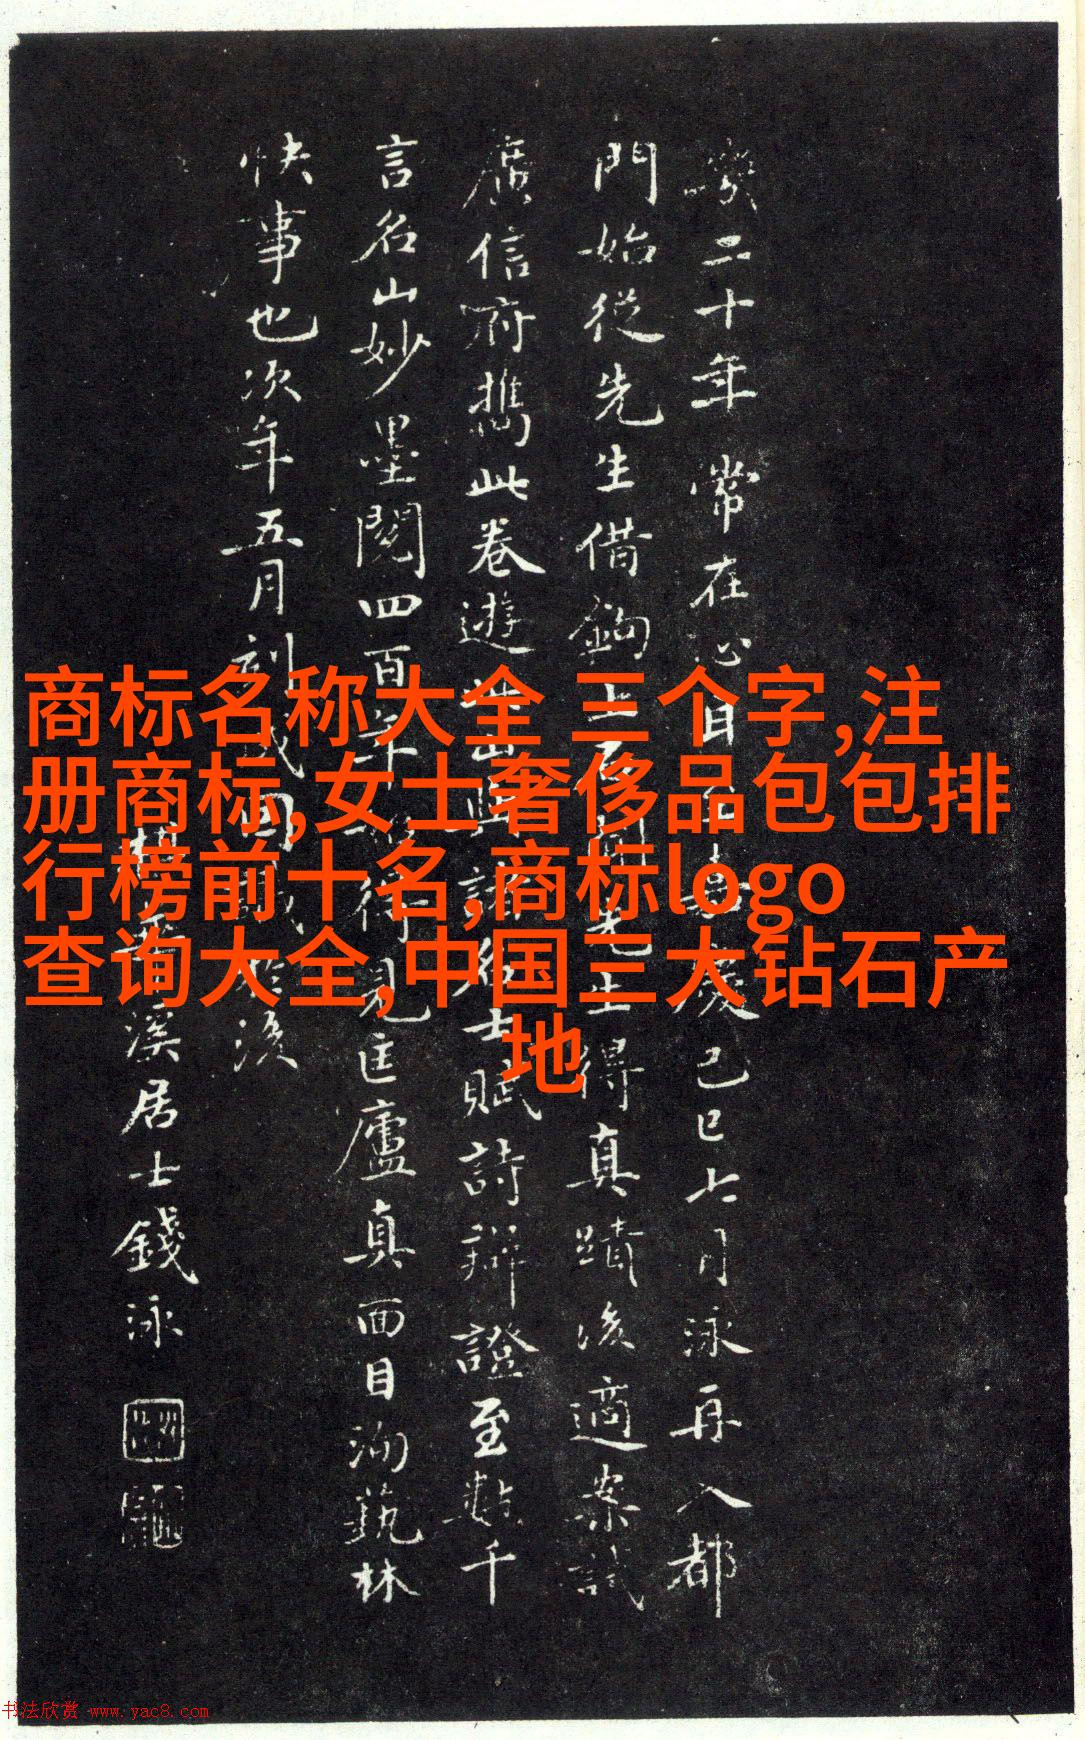 商标名称大全 三个字,注
册商标,女士奢侈品包包排
行榜前十名,商标logo
查询大全,中国三大钻石产
地
二十年常在心目己巳七月泳再入都
門始從先生借鉤上石先生得真蹟後適案試
廣信府攜此卷遊賦詩辯證至數千
言名山妙墨閱四百年得見匡廬真面目洵藝林
快事也次年五月刻後
溪居士錢泳
书法欣赏 www.yac8.com